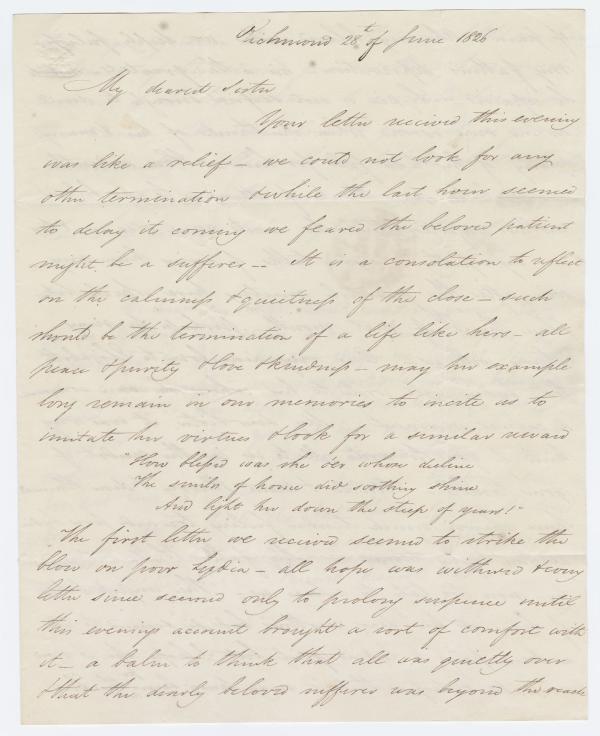 Richmond 28th of June 1826
My dearest Sister
Your letter received this evening
was like a relief – we could not look for any
other termination & while the last hour seemed
to delay its coming we feared the beloved patient
might be a sufferer –– It is a consolation to reflect
on the calmness & quietness of the close – such
should be the termination of a life like hers – all
peace & purity & love & kindness – may her example
long remain in our memories to incite us to
imitate her virtues & look for a similar reward
"How blessed was she o'er whose decline
The smiles of home did soothing shine
And light her down the steep of years!"
The first letter we received seemed to strike the
blow on poor Lydia – all hope was withered & every
letter since seemed only to prolong suspense until
this evenings account brought a sort of comfort with
it – a balm to think that all was quietly over
& that the dearly beloved sufferer was beyond the reach